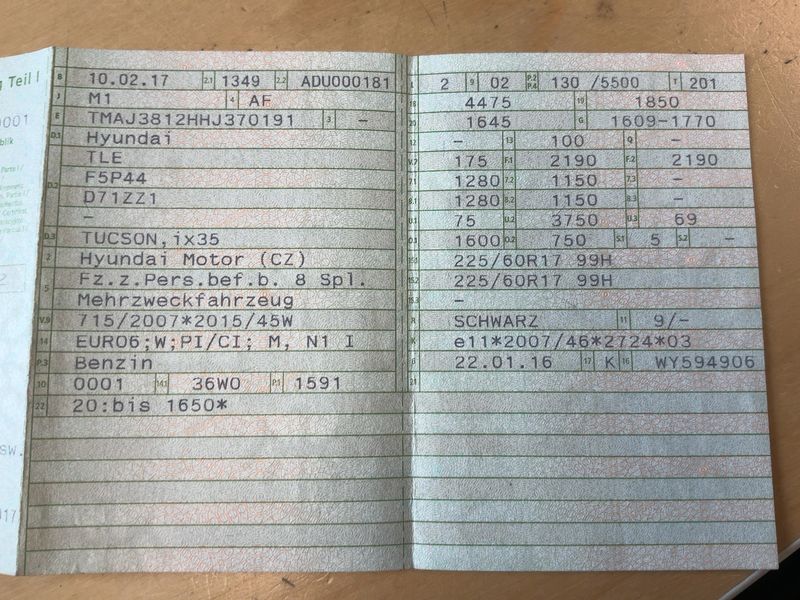 g Teil I
001
blik
sw.
017
B 10.02.17 2.1 1349 2.2 ADU000181
J M1 4 AF
E TMAJ3812HHJ370191 3 –
D.1 Hyundai
TLE
D.2 F5P44
D71ZZ1
–
D.3 TUCSON,ix35
2 Hyundai Motor (CZ)
5 Fz.z.Pers.bef.b. 8 Spl.
Mehrzweckfahrzeug
V.9 715/2007*2015/45W
14 EURO6;W;PI/CI; M, N1 I
P.3 Benzin
10 0001 14.1 36W0 P.1 1591
22 20:bis 1650*
L 2 9 02 P.2 P.4 130 /5500 T 201
18 4475 19 1850
20 1645 G 1609-1770
12 – 13 100 Q –
V.7 175 F.1 2190 F.2 2190
7.1 1280 7.2 1150 7.3 –
8.1 1280 8.2 1150 8.3 –
U.1 75 U.2 3750 U.3 69
O.1 1600 O.2 750 S.1 5 S.2 –
15.1 225/60R17 99H
15.2 225/60R17 99H
15.3 –
R SCHWARZ 11 9/–
K e11*2007/46*2724*03
6 22.01.16 17 K 16 WY594906
21